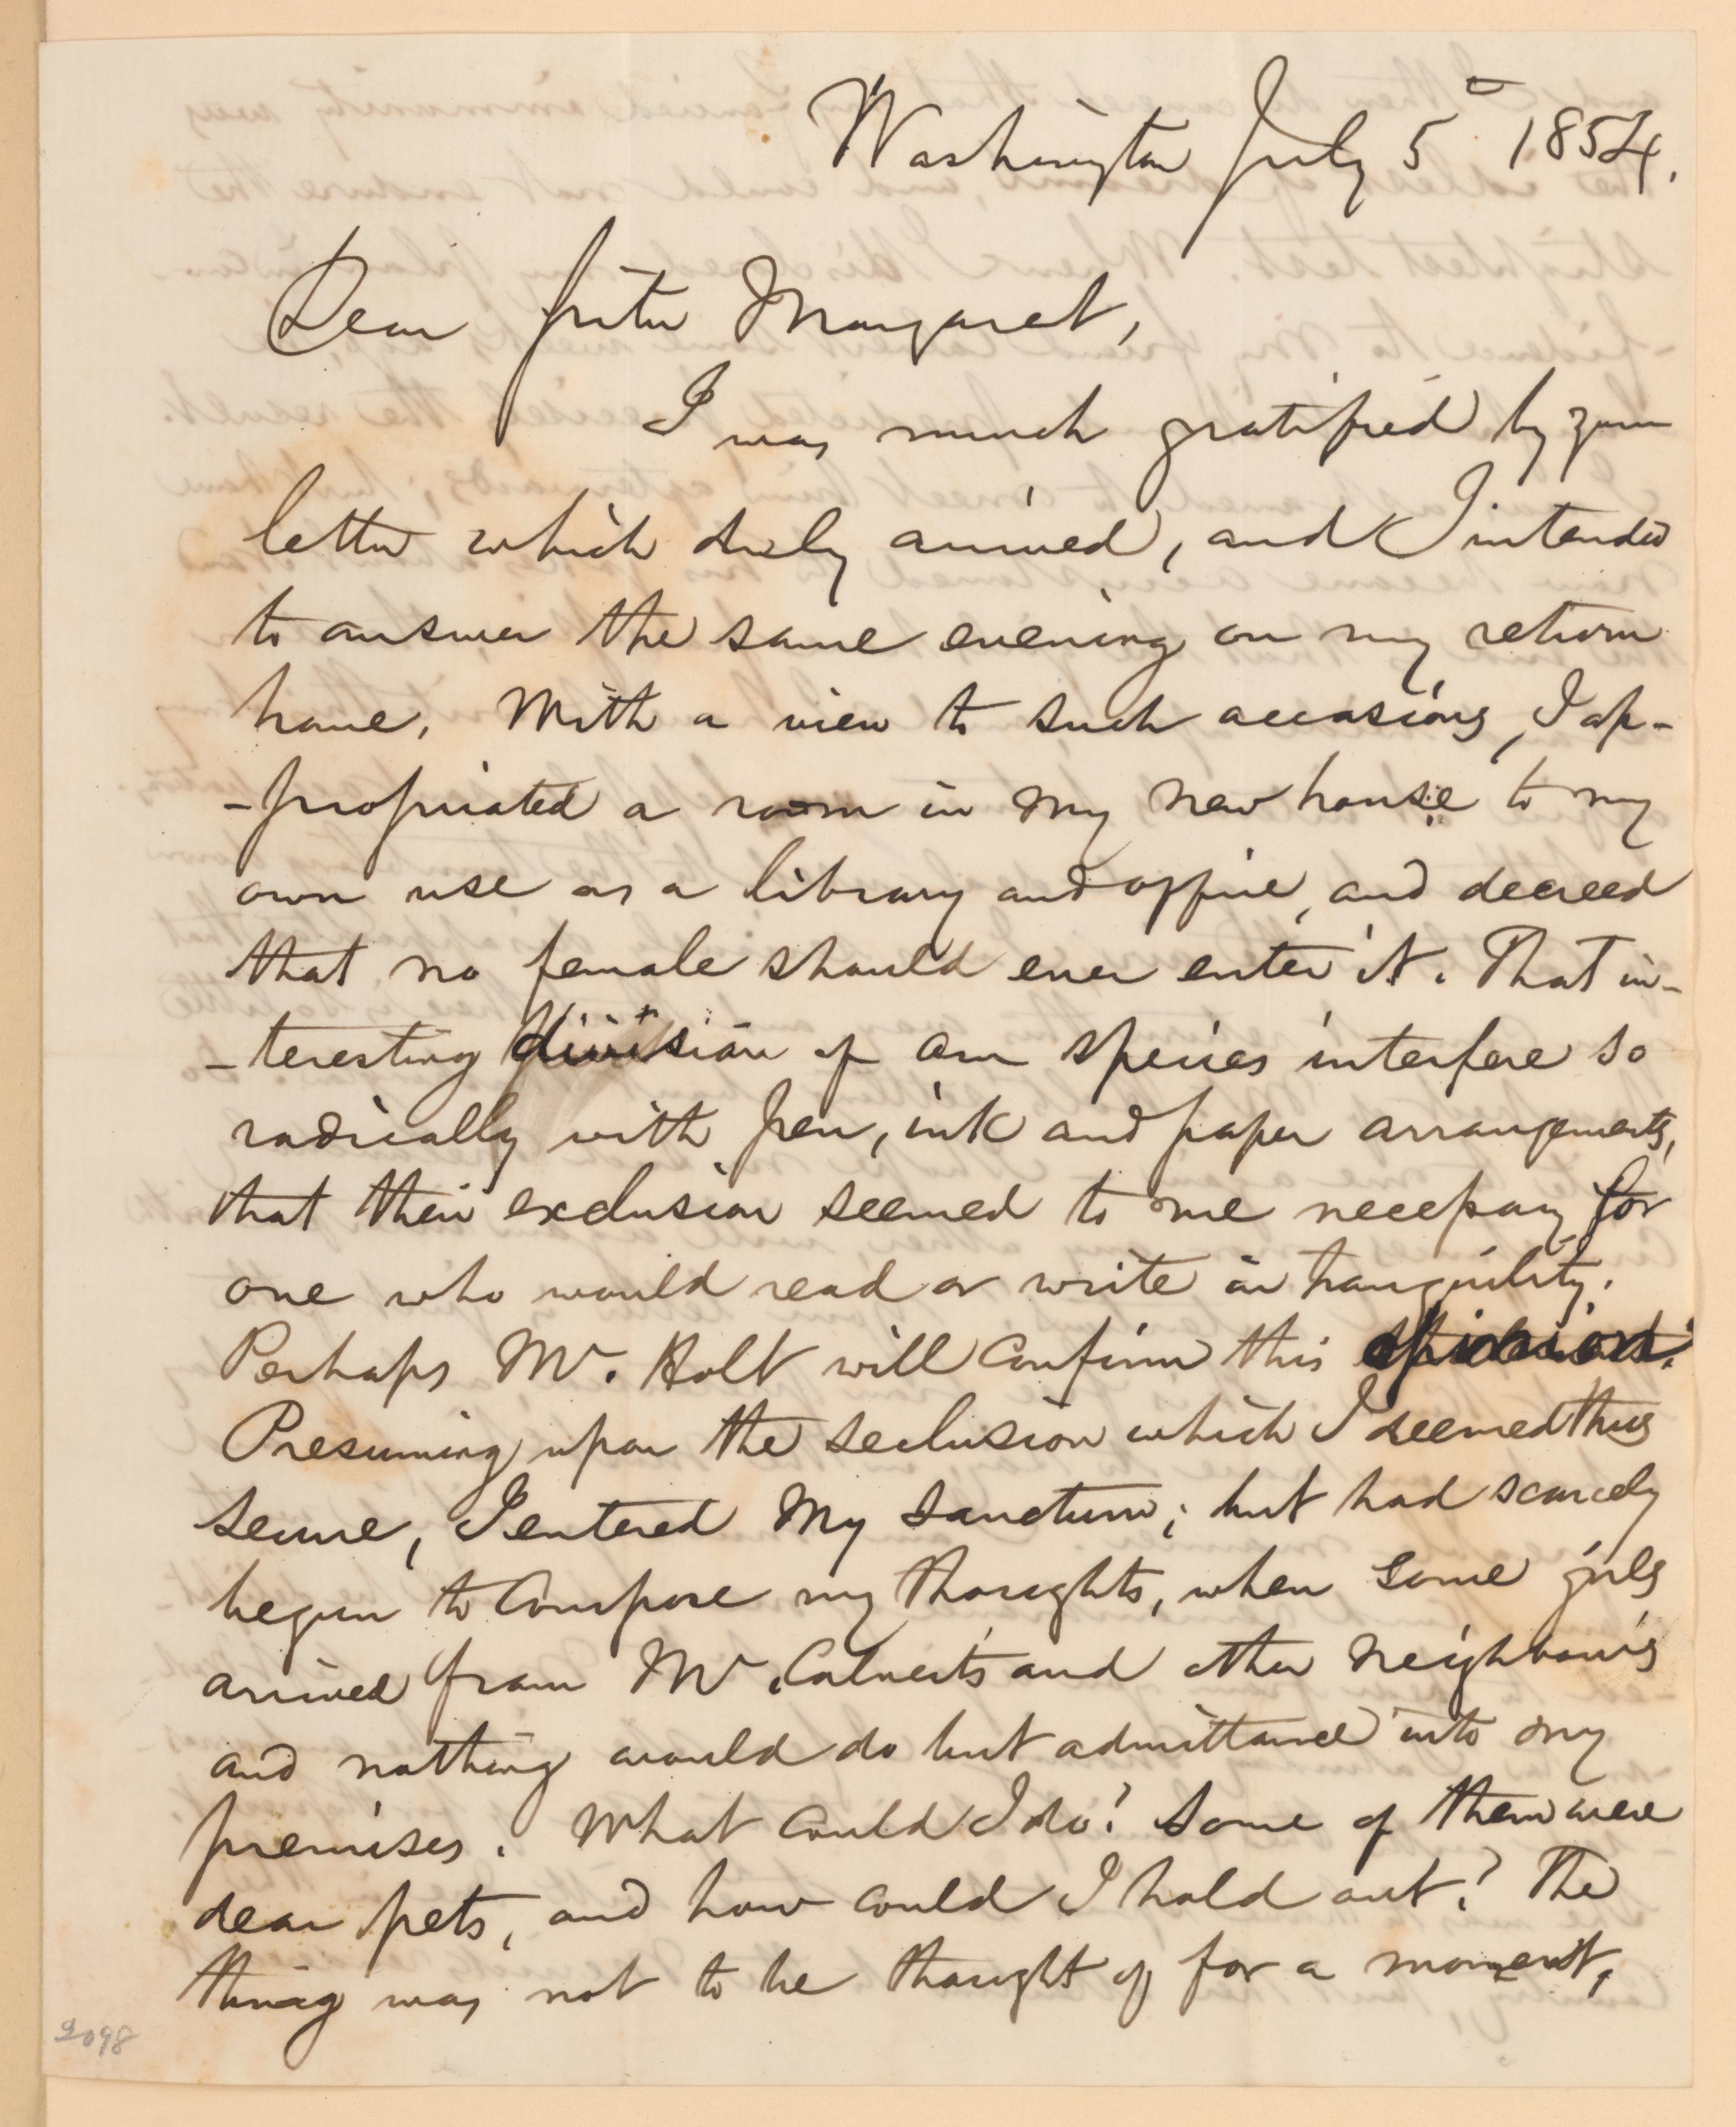 Washington July 5 1854.
Dear Sister Margaret,
I was much gratified by your
letter which duly arrived, and I intended
to answer the same evening on my return
home. With a view to such occasions, I ap-
-propriated a room in my new house to my
own use as a library and office, and decreed
that no female should ever enter it. That in-
-teresting division of our species interfere so
radically with pen, ink and paper arrangements,
that their exclusion seemed to me necessary for
one who would read or write in tranquility.
Perhaps Mr. Holt will confirm this opinion.
Presuming upon the seclusion which I deemed thus
secure, I entered my sanctum; but had scarcely
begun to compose my thoughts, when some girls
arrived from Mr. Calverts and other neighbours
and nothing would do but admittance into my
premises. What could I do? Some of them were
dear pets, and how could I hold out? The
thing was not to be thought of for a moment,
2098